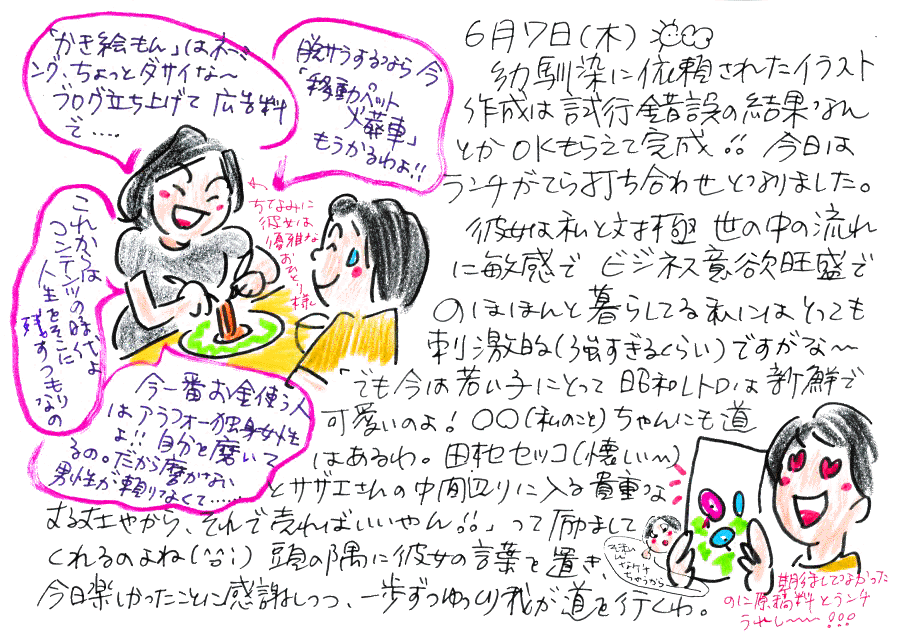 6月7日(木)
幼馴染に依頼されたイラスト
作成は試行錯誤の結果なん
とかOKもらえて完成!! 今日は
ランチがてら打ち合わせとなりました。
彼女は私と対極 世の中の流れ
に敏感で ビジネス意欲旺盛で
のほほんと暮らしてる私にはとっても
刺激的(強すぎるくらい)ですがな〜
「でも今は若い子にとって昭和レトロは新鮮で
可愛いのよ! 〇〇(私のこと)ちゃんにも道
はあるわ。田村セツコ(懐いm)
とサザエさんの中間辺りに入る貴重な
するやから、そんで売ればいいやん!!」って励まして
くれるのよね(^^;) 頭の隅に彼女の言葉を置き、
今日楽しかったことに感謝しつつ、一歩ずつゆっくり我が道を行くわ。
「かき絵もん」はネーミ
ング、ちょっとダサイな〜
ブログ立ち上げて 広告料
で....
脱サラするなら今
「移動ペット
火葬車」
もうかるわよ!!
ちなみに
彼女は
優雅な
おひとり様
これからは
コンテンツの時代よ
人生をそこに
残すつもりなの
今一番お金使う人
はアラフォー独身女性
よ!! 自分を磨いて
るの。だから磨かない
男性が頼りなくて......
期待してなかった
のに原稿料とランチ
うれし〜〜!!!